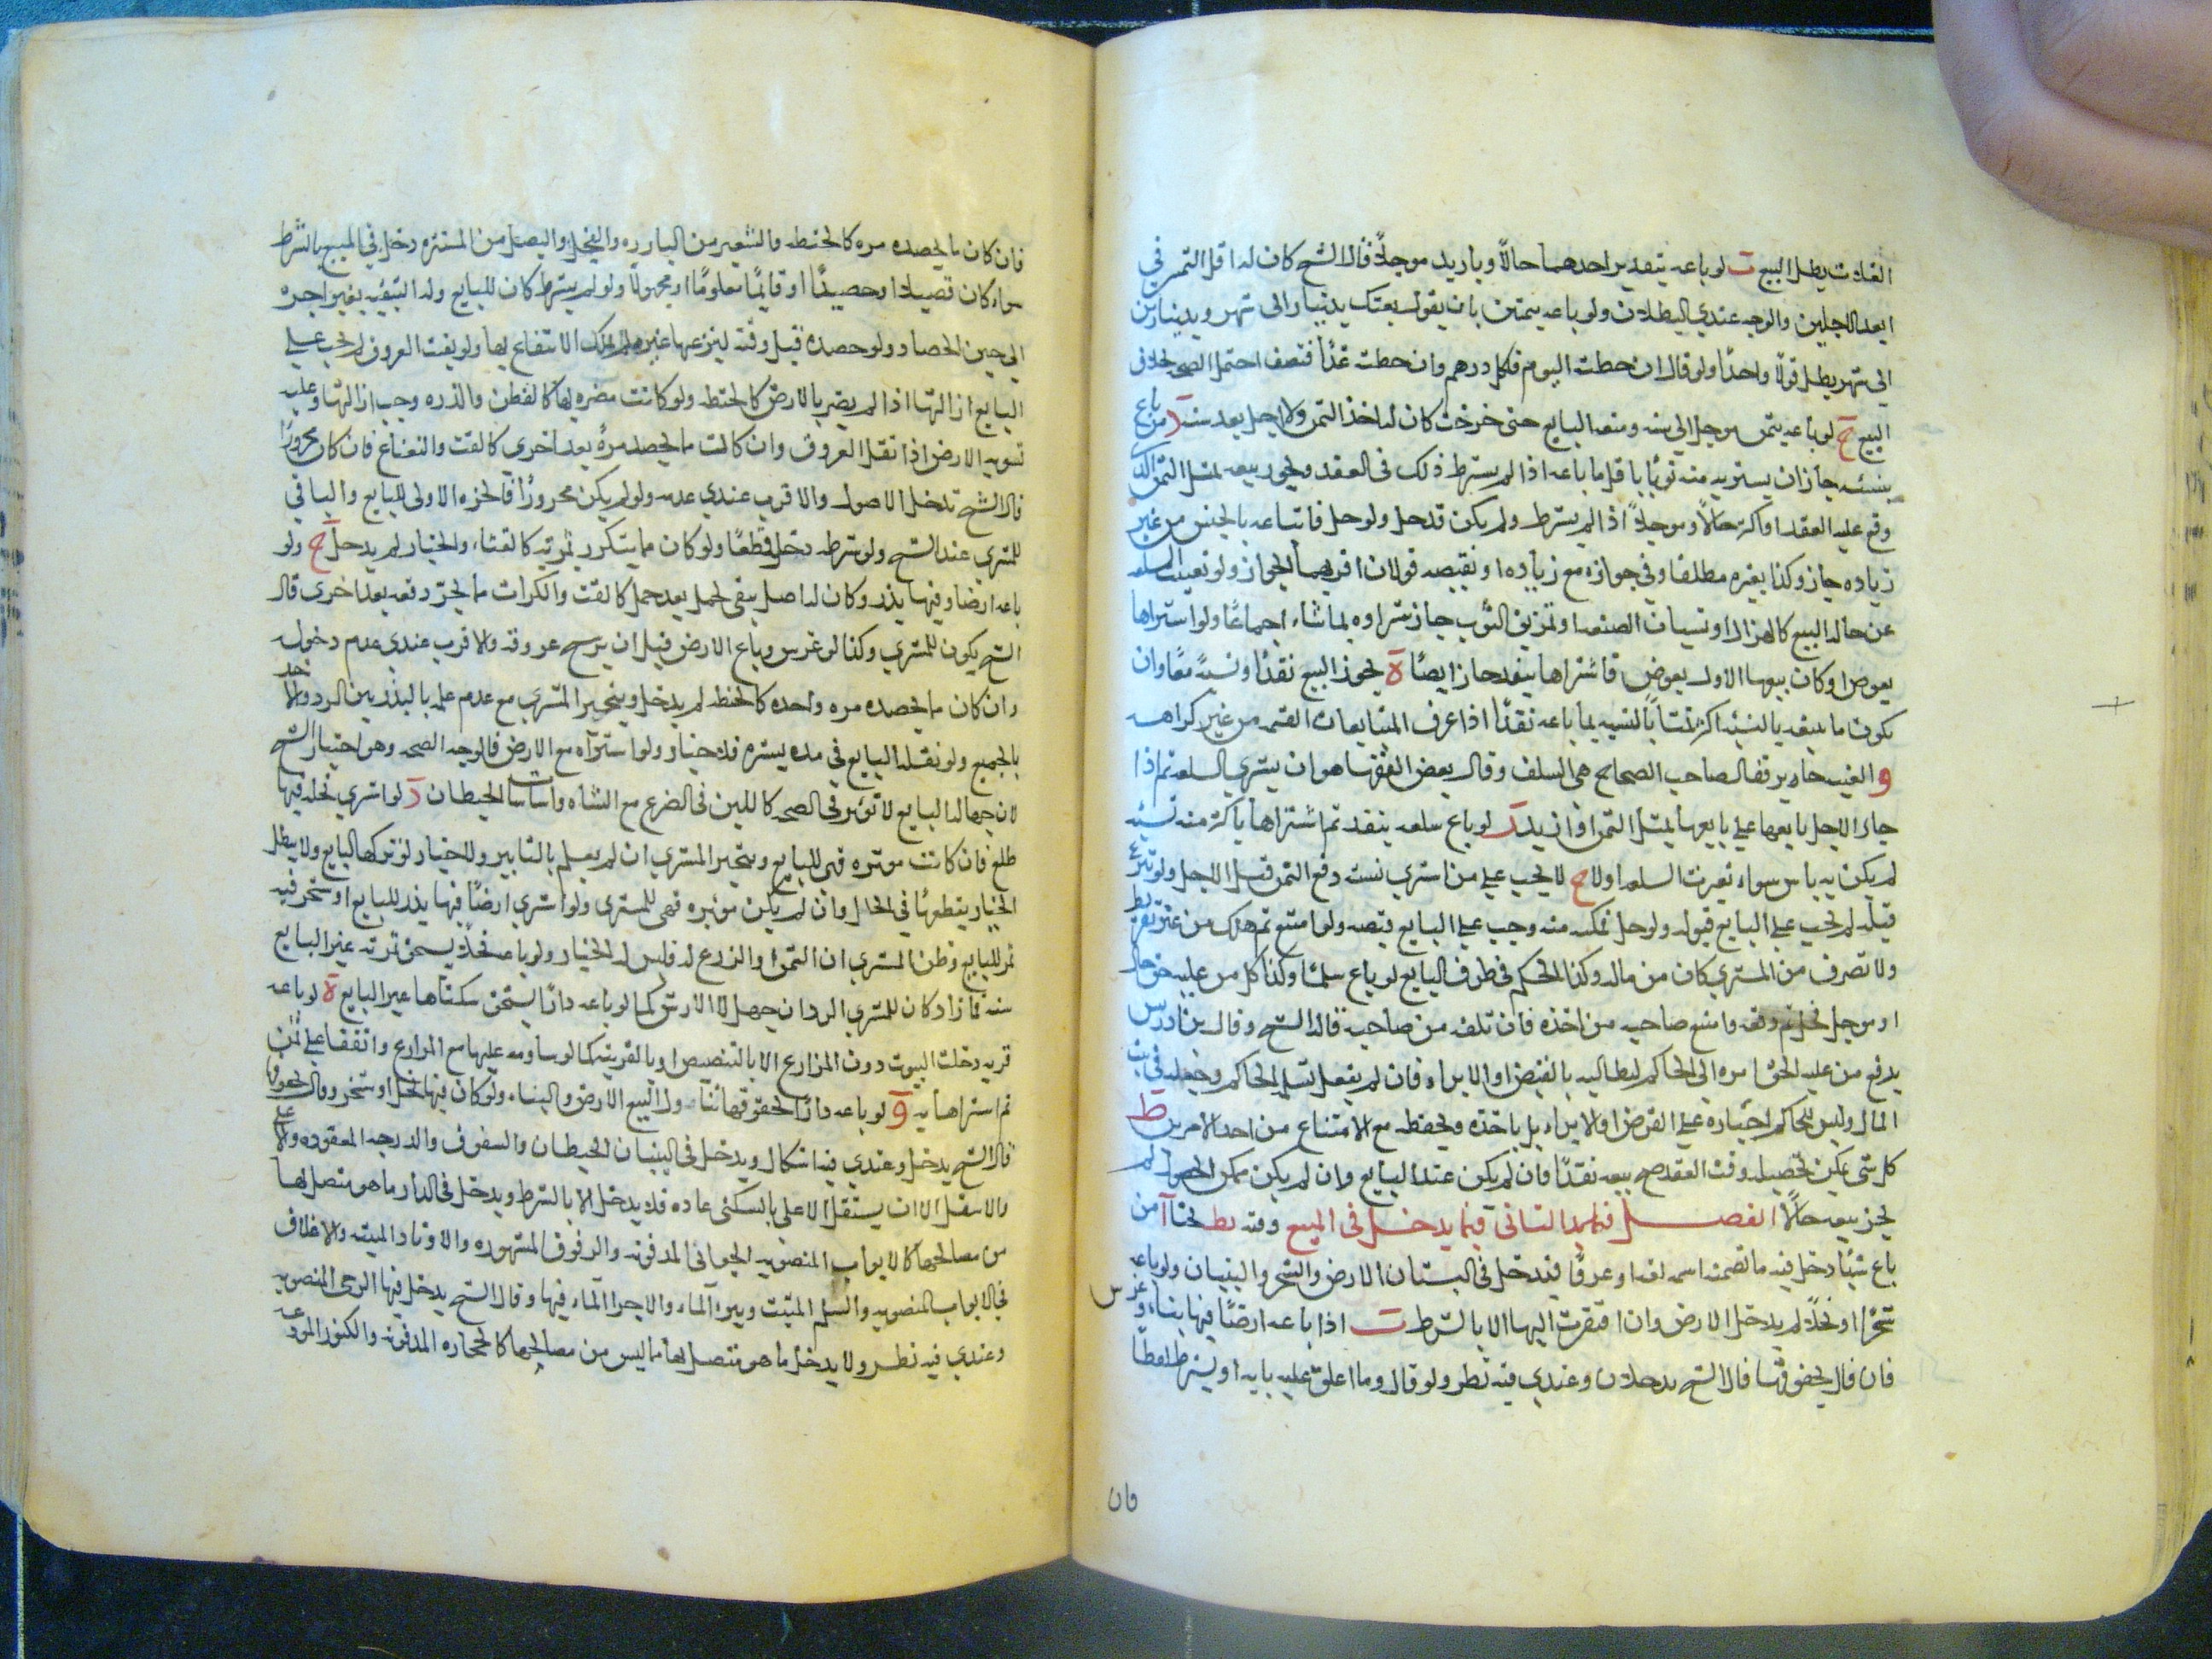 الغلات بطل البيع ب لو باعه بتقديرين احدهما حالا وبازيد موجلا قال الشيخ كان له اقل الثمنين في
ابعد الاجلين والوجه عندي البطلان ولو باعه بثمنين بان يقول بعتك بدينار الى شهر وبدينارين
الى شهرين بطل قولا واحدا ولو قال ان خطت اليوم فلك درهم وان خطت غدا فنصف احتمل الصحه بخلاف
البيع ج لو باعه بثمن موجل الى سنه ومنعه البايع حتى خرجت كان له اخذ الثمن ولا اجل بعد سنه د من باع
بنسئه جاز ان يشتريه منه ثوبا باقل ما باعه اذا لم يشترط ذلك في العقد ويجوز بيعه بمثل الثمن الذي
وقع عليه العقد او اكثر حالا وموجلا اذا لم يشترط ولم يكن قد حل ولو حل فابتاعه بالجنس من غير
زياده جاز وكذا بغيره مطلقا وفي جوازه مع زياده او نقيصه قولان اقربهما الجواز ولو تعيبت السلعه
عن حالة البيع كالهزال او نسيان الصنعه او تمزيق الثوب جاز شراوه بما شاء اجماعا ولو اشتراها
بعوض او كان بيعها الاول بعوض فاشتراها بنقد جاز ايضا ه يجوز البيع نقدا ونسية معا وان
يكون ما يبيعه بالنسيه اكثر ثمنا بالنسيه مما باعه نقدا اذا عرف المتبايعان القيمه من غير كراهيه
و العينه جايزه فقال صاحب الصحاح هي السلف وقال بعض الفقهاء هو ان يشتري السلعه ثم اذا
جاء الاجل باعها على بايعها بمثل الثمن او ازيد ز لو باع سلعه بنقد ثم اشتراها باكثر منه نسية
لم يكن به باس سواء تغيرت السلعه اولا ح لا يجب على من اشترى نسية دفع الثمن قبل الاجل ولو تبرع
قبله لم يجب على البايع قبوله ولو حل فمكنه منه وجب على البايع قبضه ولو امتنع ثم هلك من غير تفريط
ولا تصرف من المشتري كان من ماله وكذا الحكم في طرف البايع لو باع سلما وكذا كل من عليه حق حال
او موجل فحل ثم دفعه وامتنع صاحبه من اخذه فان تلفه من صاحبه قال الشيخ وقال بن ادريس
يدفع من عليه الحق امره الى الحاكم ليطالبه بالقبض او الابراء فان لم يفعل تسلم الحاكم وجعله في بيت
المال وليس للحاكم اجباره على القبض او الابراء بل ياخذه ويحفظه مع الامتناع من احد الامرين ط
كل شي يمكن تحصيله وقت العقد صح بيعه نقدا فان لم يكن عند البايع وان لم يكن ممكن الحصول لم
يجز بيعه حالا الفصل الثاني فيما يدخل في المبيع وفيه بحثا ا من
باع شيئا دخل فيه ما تضمنه اسمه لغه او عرفا فيدخل في البستان الارض والشجر والبنيان ولو باعه
شجرا او نخلا لم يدخل الارض وان افتقرت اليها الا بالشرط ب اذا باعه ارضا فيها بناء وغرس
فان قال بحقوقها قال الشيخ يدخلان وعندي فيه نظر ولو قال وما اغلق عليه بابه او يشترط لفظا
فان
فان كان مما يحصده مره كالحنطه والشعير من البارره والفجل والبصل من المستتره دخل في المبيع بالشرط
سواء كان قصيلا او حصيدا او قايما معلوما او مجهولا ولو لم يشترط كان للبايع وله التبقيه بغير اجره
الى حين الحصاد ولو حصده قبل وقته ليزرعها غيره لم يملك الانتفاع بها ولو بقيت العروق لم يجب على
البايع ازالتها اذا لم يضر بالارض كالحنطه ولو كانت مضره بها كالقطن والذره وجب ازالتها وعليه
تسويه الارض اذا نقل العروق وان كانت مما يحصد مرة بعد اخرى كالقت والنعناع فان كان مجزوزا
قال الشيخ تدخل الاصول والاقرب عندي عدمه ولو لم يكن مجزوزا فالجزه الاولى للبايع والباقي
للمشتري عند الشيخ ولو شرطه دخل قطعا ولو كان مما يتكرر ثمرته كالقثاء والخيار لم يدخل ج ولو
باعه ارضا وفيها بذر وكان له اصل يبقى لحمل بعد حمل كالقت والكراث مما يجز دفعه بعد اخرى قال
الشيخ يكون للمشتري وكذا لو غرس وباع الارض قبل ان يرسخ عروقه والاقرب عندي عدم دخوله
وان كان مما يحصده مره واحده كالحنطه لم يدخل ويتخير المشتري مع عدم علمه بالبذر بين الرد والاخذ
بالجميع ولو نقله البايع في مده يسيره فلا خيار ولو اشتراه مع الارض فالوجه الصحه وهو اختيار الشيخ
لان جهاله البايع لا توثر في الصحه كاللبن في الضرع مع الشاه واساسات الحيطان د لو اشترى نخلة فيها
طلع فان كانت موبره فهي للبايع ويتخير المشتري ان لم يعلم بالتابير ولا خيار لو تركها البايع ولا يبطل
الخيار بقطعها في الحال وان لم يكن موبره فهي للمشتري ولو اشترى ارضا فيها بذر للبايع او شجر فيه
ثمر للبايع وظن المشتري ان الثمن والزرع له فليس له الخيار ولو باعه نخلا يستحق ثمرته غير البايع
سنه فما زاد كان للمشتري الرد ان جهل لا الارش كما لو باعه دارا يستحق سكناها غير البايع ه لو باعه
قريه دخلت البيوت دون المزارع الا بالتنصيص او بالقرينه كما لو ساومه عليها مع المزارع واتفقا على ثمن
ثم اشتراها به و لو باعه دارا بحقوقها البيع الارض والبناء ولو كان فيها نخل او شجر وقال بحقوقها
قال الشيخ يدخل وعندي فيه اشكال ويدخل في البنيان الحيطان والسقوف والدرجه المعقوده والاعلى
والاسفل الا ان يستقل الاعلى بالسكنى عاده فلا يدخل الا بالشرط ويدخل في الدار ما هو متصل بها
من مصالحها كالابواب المنصوبه الخوابي المدفونه والرفوف المشهوره والاوتاد المثبته والاغلاق
في الابواب المنصوبه والسلم المثبت وبيوت الماء والاجر الماء فيها وقال الشيخ يدخل فيها الرحى المنصوبه
وعندي فيه نظر ولا يدخل ما هو متصل بها مما ليس من مصالحها كالحجاره المدفونه والكنوز المودعه